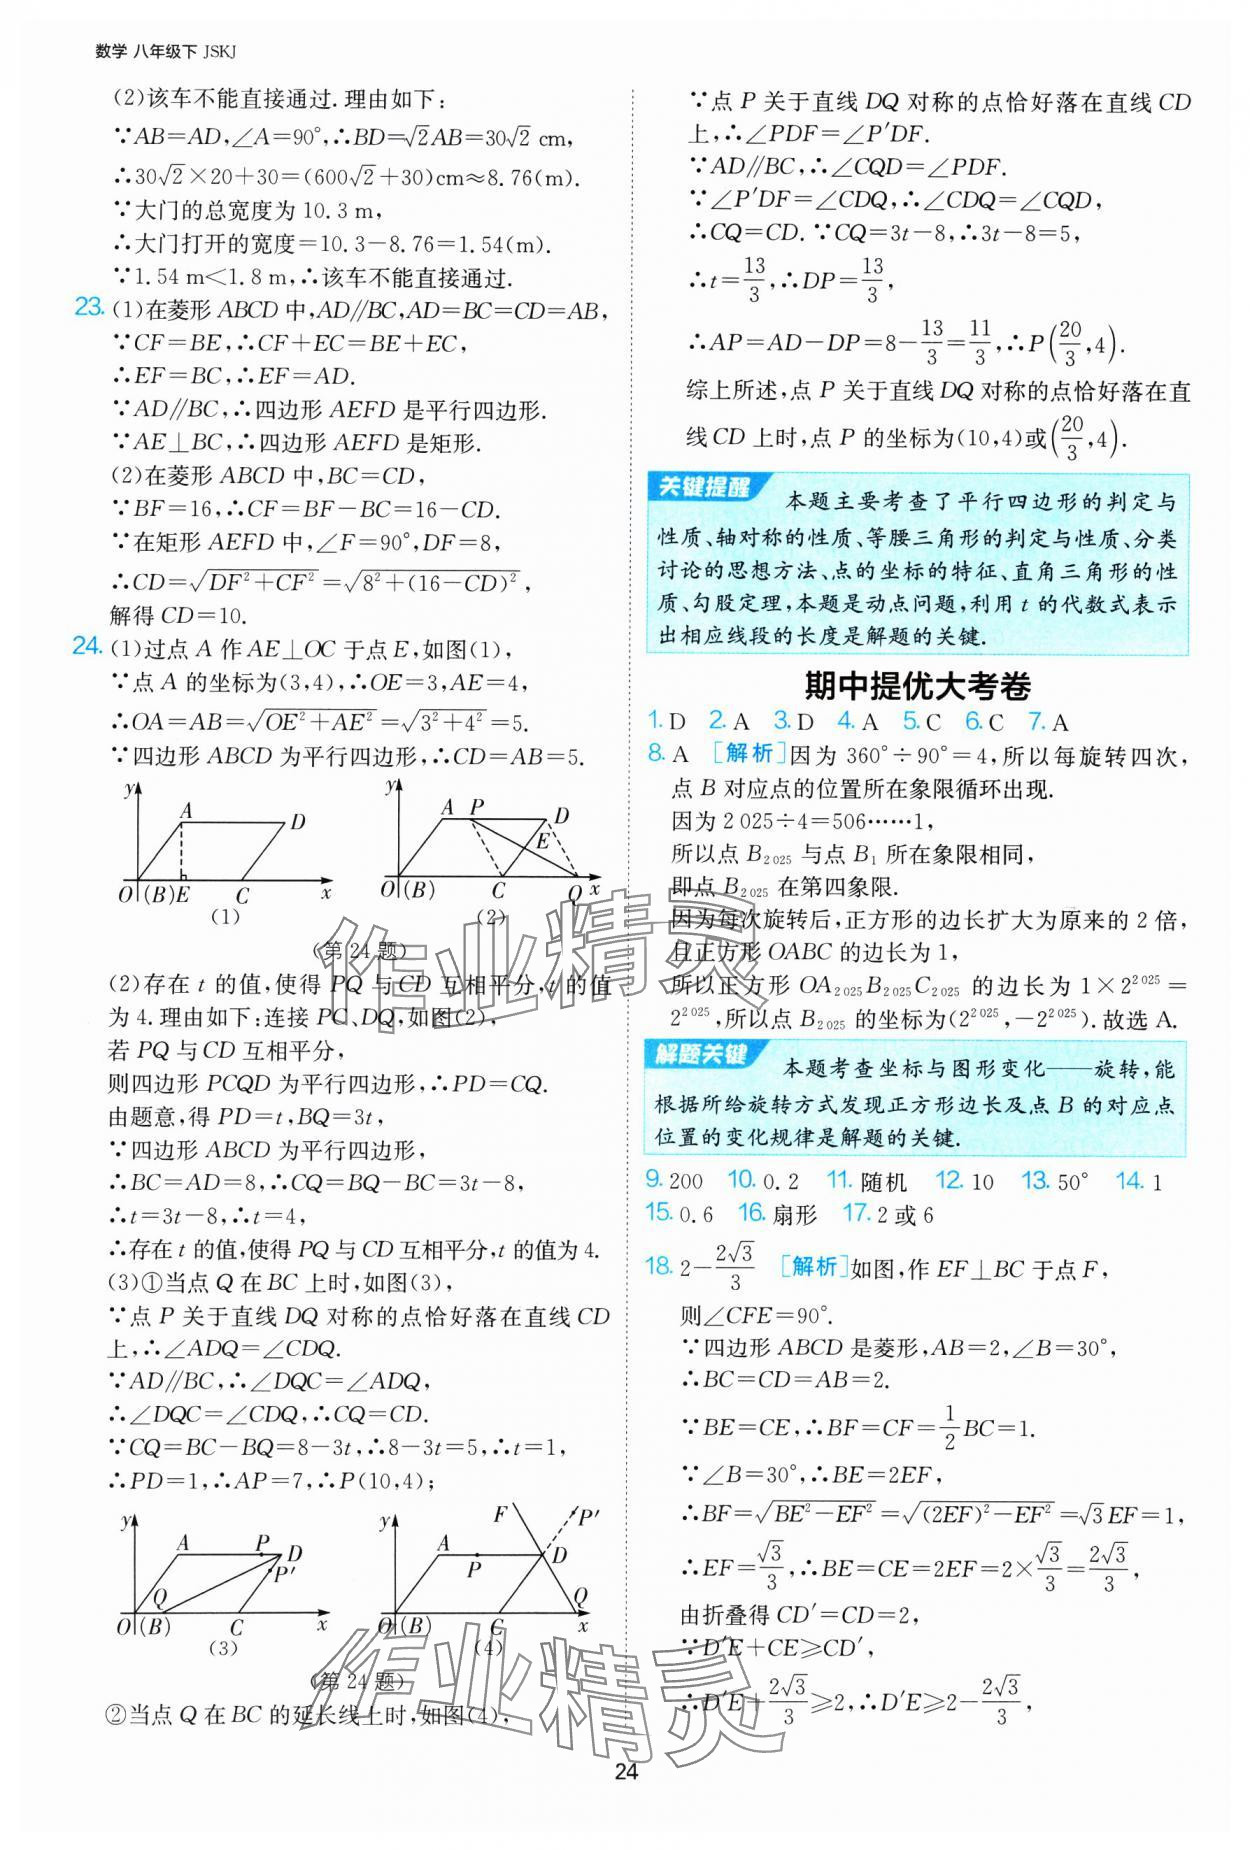 数学 八年级下 JSKJ
(2)该车不能直接通过.理由如下:
∵AB=AD,∠A=90°,∴BD=√2AB=30√2 cm,
∴30√2×20+30=(600√2+30)cm≈8.76(m).
∵大门的总宽度为 10.3 m,
∴大门打开的宽度=10.3-8.76=1.54(m).
∵1.54 m<1.8 m,∴该车不能直接通过.
23. (1)在菱形 ABCD 中,AD∥BC,AD=BC=CD=AB,
∵CF=BE,∴CF+EC=BE+EC,
∴EF=BC,∴EF=AD.
∵AD∥BC,∴四边形 AEFD 是平行四边形.
∵AE⊥BC,∴四边形 AEFD 是矩形.
(2)在菱形 ABCD 中,BC=CD,
∵BF=16,∴CF=BF-BC=16-CD.
∵在矩形 AEFD 中,∠F=90°,DF=8,
∴CD=√(DF²+CF²)=√(8²+(16-CD)²),
解得 CD=10.
24. (1)过点 A 作 AE⊥OC 于点 E,如图(1),
∵点 A 的坐标为(3,4),∴OE=3,AE=4,
∴OA=AB=√(OE²+AE²)=√(3²+4²)=5.
∵四边形 ABCD 为平行四边形,∴CD=AB=5.
y A D O (B) E C x
(1)
y A P D E O (B) C Q x
(2)
(第 24 题)
(2)存在 t 的值,使得 PQ 与 CD 互相平分,t 的值
为 4.理由如下:连接 PC、DQ,如图(2),
若 PQ 与 CD 互相平分,
则四边形 PCQD 为平行四边形,∴PD=CQ.
由题意,得 PD=t,BQ=3t,
∵四边形 ABCD 为平行四边形,
∴BC=AD=8,∴CQ=BQ-BC=3t-8,
∴t=3t-8,∴t=4,
∴存在 t 的值,使得 PQ 与 CD 互相平分,t 的值为 4.
(3)①当点 Q 在 BC 上时,如图(3),
∵点 P 关于直线 DQ 对称的点恰好落在直线 CD
上,∴∠ADQ=∠CDQ.
∵AD∥BC,∴∠DQC=∠ADQ,
∴∠DQC=∠CDQ,∴CQ=CD.
∵CQ=BC-BQ=8-3t,∴8-3t=5,∴t=1,
∴PD=1,∴AP=7,∴P(10,4);
y A P D P′ Q O (B) C x
(3)
y F P′ A P D Q O (B) C x
(4)
(第 24 题)
②当点 Q 在 BC 的延长线上时,如图(4),
∵点 P 关于直线 DQ 对称的点恰好落在直线 CD
上,∴∠PDF=∠P′DF.
∵AD∥BC,∴∠CQD=∠PDF.
∵∠P′DF=∠CDQ,∴∠CDQ=∠CQD,
∴CQ=CD.∵CQ=3t-8,∴3t-8=5,
∴t=13/3,∴DP=13/3,
∴AP=AD-DP=8-13/3=11/3,∴P(20/3,4).
综上所述,点 P 关于直线 DQ 对称的点恰好落在直
线 CD 上时,点 P 的坐标为(10,4)或(20/3,4).
关键提醒 本题主要考查了平行四边形的判定与
性质、轴对称的性质、等腰三角形的判定与性质、分类
讨论的思想方法、点的坐标的特征、直角三角形的性
质、勾股定理,本题是动点问题,利用 t 的代数式表示
出相应线段的长度是解题的关键.
期中提优大考卷
1. D 2. A 3. D 4. A 5. C 6. C 7. A
8. A [解析]因为 360°÷90°=4,所以每旋转四次,
点 B 对应点的位置所在象限循环出现.
因为 2 025÷4=506……1,
所以点 B₂₀₂₅ 与点 B₁ 所在象限相同,
即点 B₂₀₂₅ 在第四象限.
因为每次旋转后,正方形的边长扩大为原来的 2 倍,
且正方形 OABC 的边长为 1,
所以正方形 OA₂₀₂₅B₂₀₂₅C₂₀₂₅ 的边长为 1×2²⁰²⁵=
2²⁰²⁵,所以点 B₂₀₂₅ 的坐标为(2²⁰²⁵,-2²⁰²⁵).故选 A.
解题关键 本题考查坐标与图形变化——旋转,能
根据所给旋转方式发现正方形边长及点 B 的对应点
位置的变化规律是解题的关键.
9. 200 10. 0.2 11. 随机 12. 10 13. 50° 14. 1
15. 0.6 16. 扇形 17. 2 或 6
18. 2-2√3/3 [解析]如图,作 EF⊥BC 于点 F,
则∠CFE=90°.
∵四边形 ABCD 是菱形,AB=2,∠B=30°,
∴BC=CD=AB=2.
∵BE=CE,∴BF=CF=1/2BC=1.
∵∠B=30°,∴BE=2EF,
∴BF=√(BE²-EF²)=√((2EF)²-EF²)=√3EF=1,
∴EF=√3/3,∴BE=CE=2EF=2×√3/3=2√3/3,
由折叠得 CD′=CD=2,
∵D′E+CE≥CD′,
∴D′E+2√3/3≥2,∴D′E≥2-2√3/3,
24
作业精灵
作业精灵